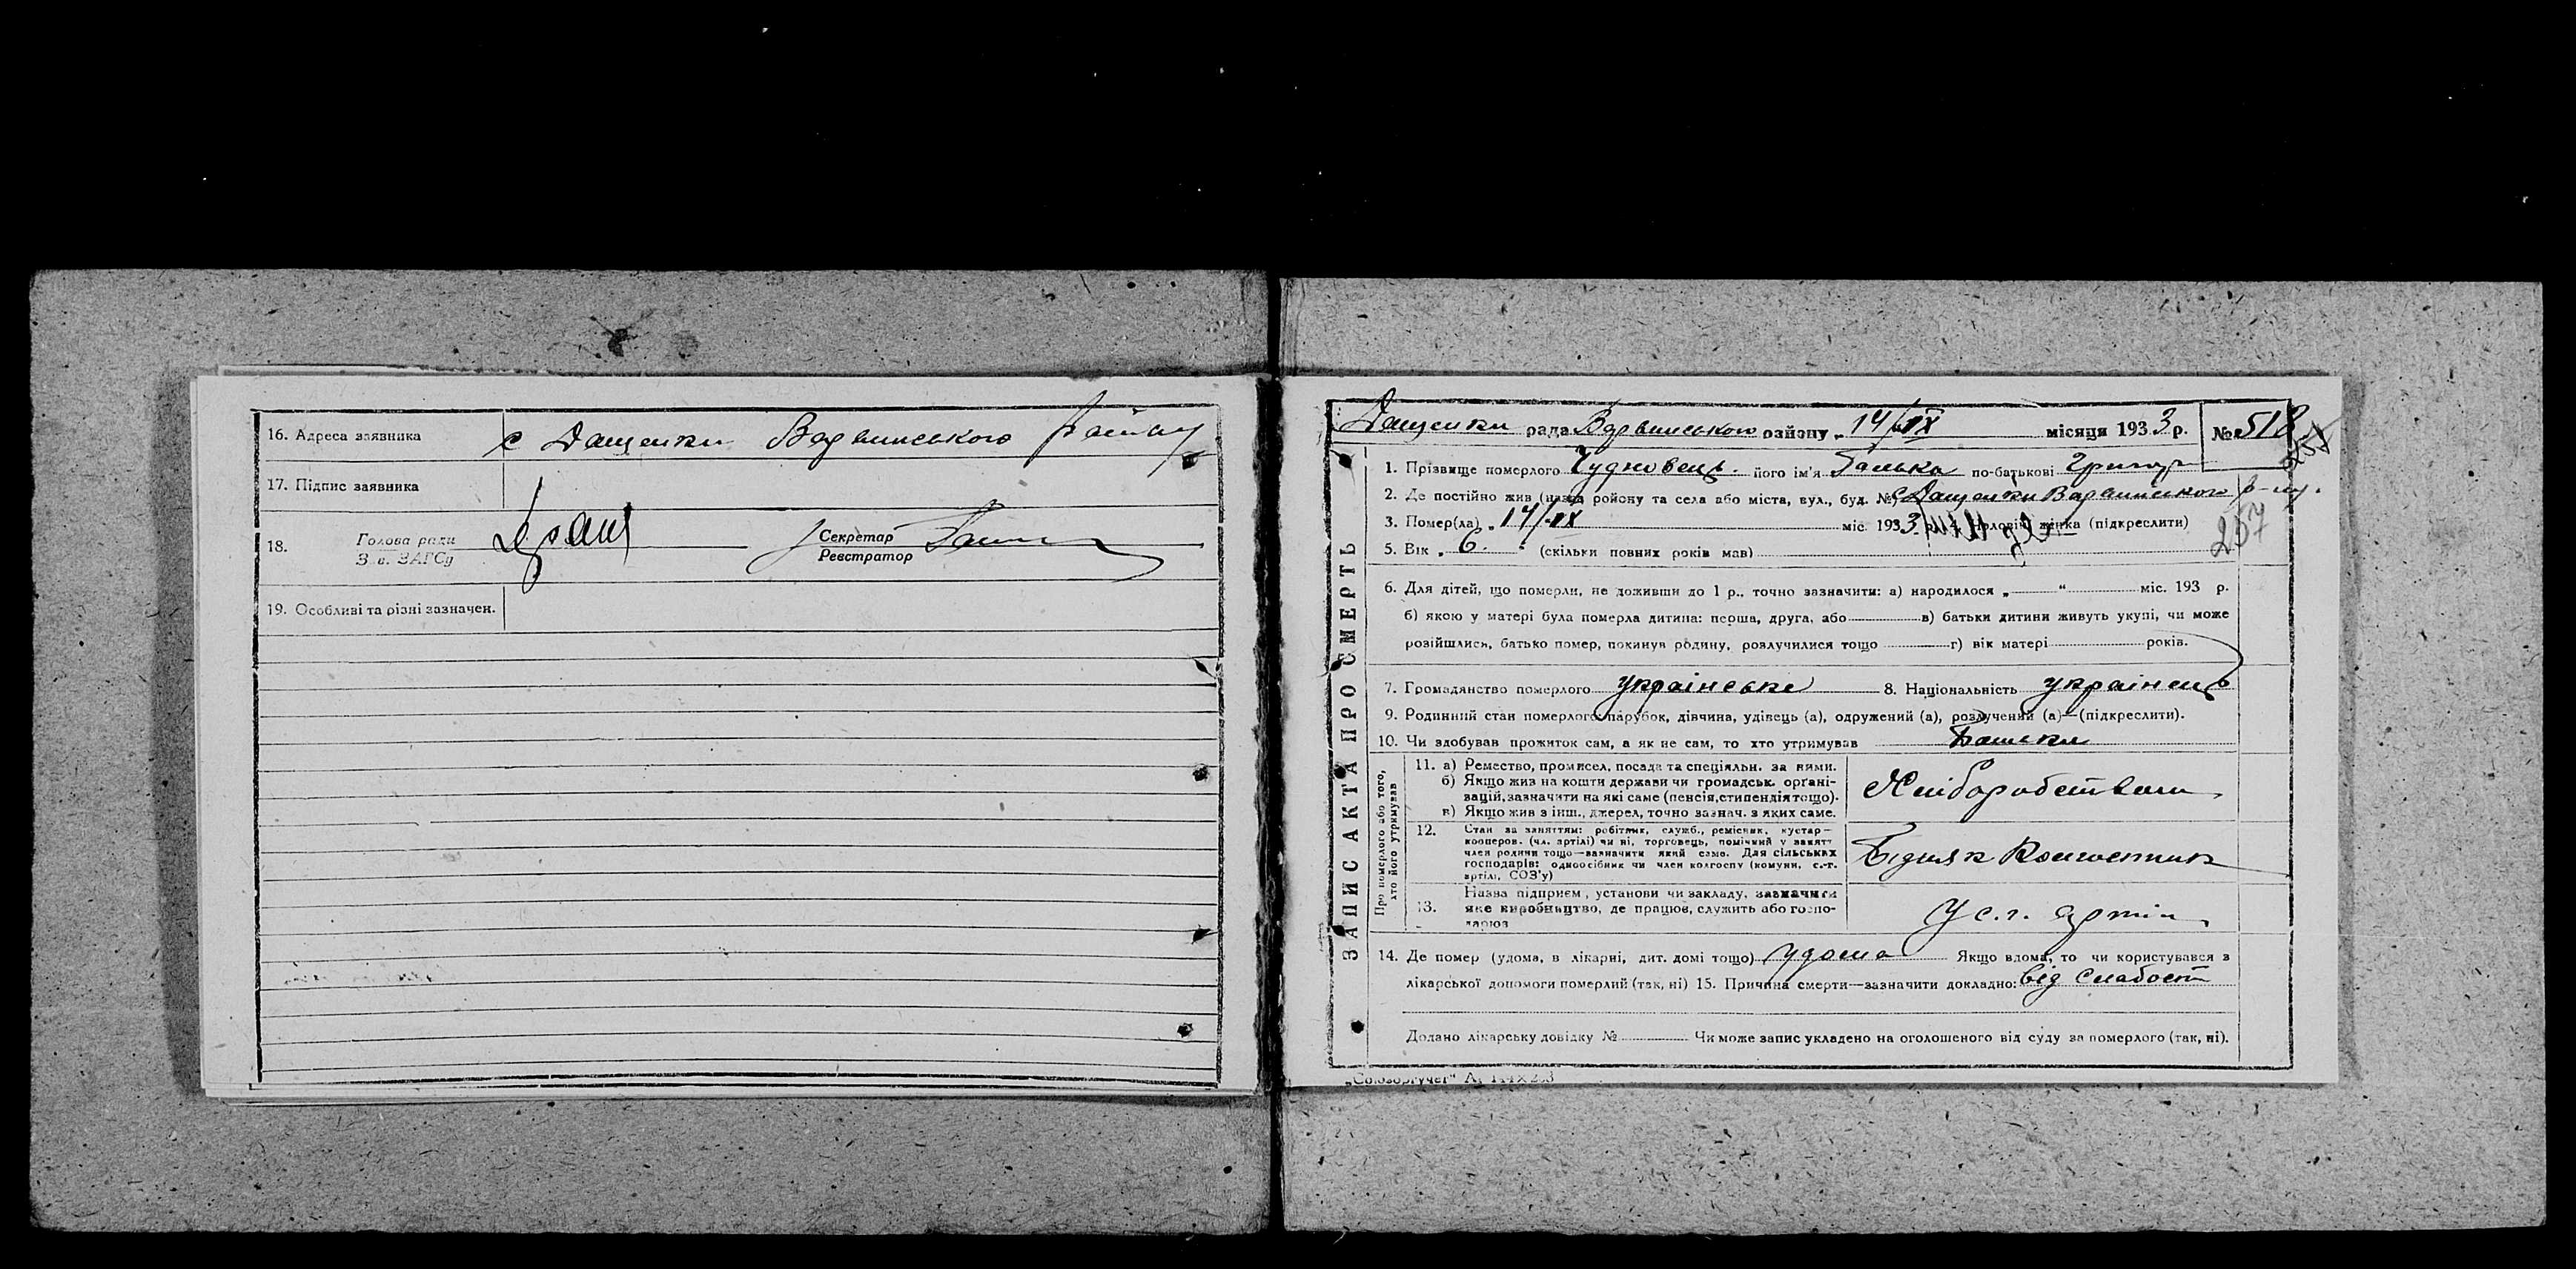 16. Адреса заявника с Дащенки Варвинського району
17. Підпис заявника
18. Голова ради
З в. ЗАГСу
Секретар
Реєстратор
19. Особливі та різні зазначен.
ЗАПИС АКТА ПРО СМЕРТЬ
Дащенки рада Варвинського району „ 14/IX місяця 1933 р. № 518
1. Прізвище померлого Чудновець його ім'я Галька по-батькові Григор
2. Де постійно жив (назва району та села або міста, вул., буд. №) с Дащенки Варвинського р-ну.
3. Помер(ла) „ 14/IX міс. 1933 р. 4. Чоловік, жінка (підкреслити)
257
5. Вік „ 6. “ (скільки повних років мав)
6. Для дітей, що померли, не доживши до 1 р., точно зазначити: а) народилося „ “ міс. 193 р.
б) якою у матері була померла дитина: перша, друга, або в) батьки дитини живуть укупі, чи може
розійшлись, батько помер, покинув родину, розлучилися тощо г) вік матері років.
7. Громадянство померлого українське 8. Національність українець
9. Родинний стан померлого: парубок, дівчина, удівець (а), одружений (а), розлучений (а)—(підкреслити).
10. Чи здобував прожиток сам, а як не сам, то хто утримував батьки
Про померлого або того, хто його утримував
11. а) Ремество, промисел, посада та спеціяльн. за ними.
б) Якщо жив на кошти держави чи громадськ. орґані-
зацій, зазначити на які саме (пенсія, стипендія тощо).
в) Якщо жив з інш., джерел, точно зазнач. з яких саме.
Хліборобством
12. Стан за заняттям: робітник, служб., ремісник, кустар—
кооперов. (чл. артілі) чи ні, торговець, помічний у занятт
член родини тощо—зазначити який само. Для сільських
господарів: одноосібник чи член колгоспу (комуни, с.-г.
артілі, СОЗ'у)
Бідняк Колгоспник
13. Назва підприєм, установи чи закладу, зазначити
яке виробництво, де працюв, служить або госпо-
дарюв
У с.г. артіл
14. Де помер (удома, в лікарні, дит. домі тощо) удома Якщо вдома, то чи користувався з
лікарської допомоги померлий (так, ні) 15. Причина смерти—зазначити докладно: від слабост
Додано лікарську довідку № Чи може запис укладено на оголошеного від суду за померлого (так, ні).
„Союзоргучет“